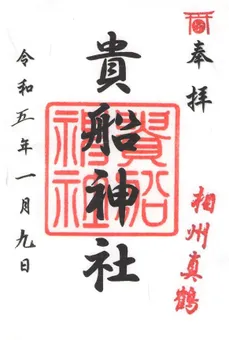 奉拝
相州真鶴
貴船神社
貴船神社
令和五年一月九日